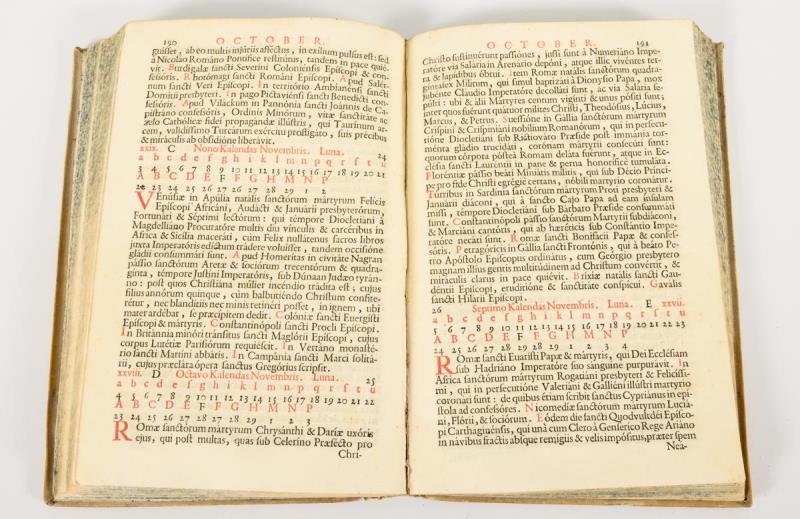 190 OCTOBER.
guisset, ab eo multis injúriis afféctus, in exílium pulsus est: sed
à Nicolao Románo Pontífice restitútus, tandem in pace quié-
vit. Burdigalæ sancti Severíni Coloniénsis Epíscopi & con-
fessóris. Rhotómagi sancti Románi Epíscopi. Apud Salér-
num sancti Veri Epíscopi. In território Ambianénsi sancti
Domítii presbyteri. In pago Pictaviénsi sancti Benedícti con-
fessóris. Apud Vilackum in Pannónia sancti Joánnis de Ca-
pistráno confessóris, Ordinis Minórum, vitæ sanctitáte ac
zelo Cathólicæ fidei propagándæ illustris, qui Taurínum ar-
cem, validíssimo Turcárum exércitu profligáto, suis précibus
& miráculis ab obsidióne liberávit.
xxix. C Nono Kalendas Novembris. Luna. 24
a b c d e f g h i k l m n p q r s t u
3 4 5 6 7 8 9 10 11 12 13 14 15 16 17 18 19 20 21
A B C D E F F G H M N P
22 23 24 25 26 27 28 29 1 2
Venúsiæ in Apúlia natális sanctórum mártyrum Felícis
Epíscopi Africáni, Audácti & Januárii presbyterórum,
Fortunáti & Séptimi lectórum: qui témpore Diocletiáni à
Magdelliáno Procuratóre multis diu vínculis & carcéribus in
Africa & Sicília maceráti, cum Felix nullátenus sacros libros
juxta Imperatóris edíctum trádere voluísset, tandem occisióne
gládii consummáti sunt. Apud Homeritas in civitáte Nagran
pássio sanctórum Arétæ & sociórum trecentórum & quadra-
ginta, témpore Justíni Imperatóris, sub Dúnaan Judæo tyrán-
no: post quos Christiána múlier incéndio trádita est; cujus
filius annórum quinque, cum balbutiéndo Christum confite-
rétur, nec blandítiis nec minis retinéri posset, in ignem, ubi
mater ardébat, se præcípitem dedit. Colóniæ sancti Evergísti
Epíscopi & mártyris. Constantinópoli sancti Procli Epíscopi.
In Británnia minóri tránsitus sancti Maglórii Epíscopi, cujus
corpus Lutétiæ Parisiórum requiéscit. In Vertáno monasté-
rio sancti Martíni abbátis. In Campánia sancti Marci solitá-
rii, cujus præclára ópera sanctus Gregórius scripsit.
xxviii. D Octavo Kalendas Novembris. Luna. 25
a b c d e f g h i k l m n p q r s t u
4 5 6 7 8 9 10 11 12 13 14 15 16 17 18 19 20 21 22
A B C D E F F G H M N P
23 24 25 26 27 28 29 1 2 3
Romæ sanctórum mártyrum Chrysánthi & Daríæ uxóris
ejus, qui post multas, quas sub Celeríno Præfécto pro
Chri-
OCTOBER. 191
Christo sustinuérunt passiónes, jussi sunt à Numeriáno Impe-
ratóre via Salária in Arenário depóni, atque illic vivéntes ter-
ra & lapídibus óbrui. Item Romæ natális sanctórum quadra-
gintaséx Mílitum, qui simul baptizáti à Dionysio Papa, mox
jubénte Cláudio Imperatóre decolláti sunt, ac via Salária se-
púlti: ubi & álii Mártyres centum vigínti & unus pósiti sunt;
inter quos fuérunt quátuor mílites Christi, Theodósius, Lúcius,
Marcus, & Petrus. Suessióne in Gállia sanctórum mártyrum
Crispíni & Crispiniáni nobílium Romanórum, qui in persecu-
tióne Diocletiáni sub Rictiováro Præside post immánia tor-
ménta gládio trucidáti, corónam martyrii consecúti sunt:
quorum córpora póstea Romam deláta fuérunt, atque in Ec-
clésia sancti Lauréntii in pane & perna honorífice tumuláta.
Floréntiæ pássio beáti Miniátis mílitis, qui sub Décio Prínci-
pe pro fide Christi egrégie certans, nóbili martyrio coronátur.
Túrribus in Sardínia sanctórum mártyrum Proti presbyteri &
Januárii diáconi, qui à sancto Cajo Papa ad eam ínsulam
missi, témpore Diocletiáni sub Bárbaro Præside consummáti
sunt. Constantinópoli pássio sanctórum Martyrii subdiáconi,
& Marciáni cantóris, qui ab hæréticis sub Constántio Impe-
ratóre necáti sunt. Romæ sancti Bonifácii Papæ & confes-
sóris. Petragóricis in Gállia sancti Frontónis, qui à beáto Pe-
tro Apóstolo Epíscopus ordinátus, cum Geórgio presbytero
magnam illíus gentis multitúdinem ad Christum convértit, &
miráculis clarus in pace quiévit. Bríxiæ natális sancti Gau-
déntii Epíscopi, eruditióne & sanctitáte conspícui. Gavális
sancti Hilárii Epíscopi.
26 Septimo Kalendas Novembris. Luna. E xxvii.
a b c d e f g h i k l m n p q r s t u
5 6 7 8 9 10 11 12 13 14 15 16 17 18 19 20 21 22 23
A B C D E F F G H M N P
24 25 26 27 28 29 1 2 3 4
Romæ sancti Evarísti Papæ & mártyris, qui Dei Ecclésiam
sub Hadriáno Imperatóre suo sánguine purpurávit. In
Africa sanctórum mártyrum Rogatiáni presbyteri & Felicíssi-
mi, qui in persecutióne Valeriáni & Galliéni illústri martyrio
coronáti sunt: de quibus étiam scribit sanctus Cypriánus in epí-
stola ad confessóres. Nicomedíæ sanctórum mártyrum Luciá-
ni, Flórii, & sociórum. Eódem die sancti Quodvultdéi Epísco-
pi Carthaginénsis, qui unà cum Clero à Genseríco Rege Ariáno
in návibus fractis absque remígiis & velis impósitus, præter spem
Nea-